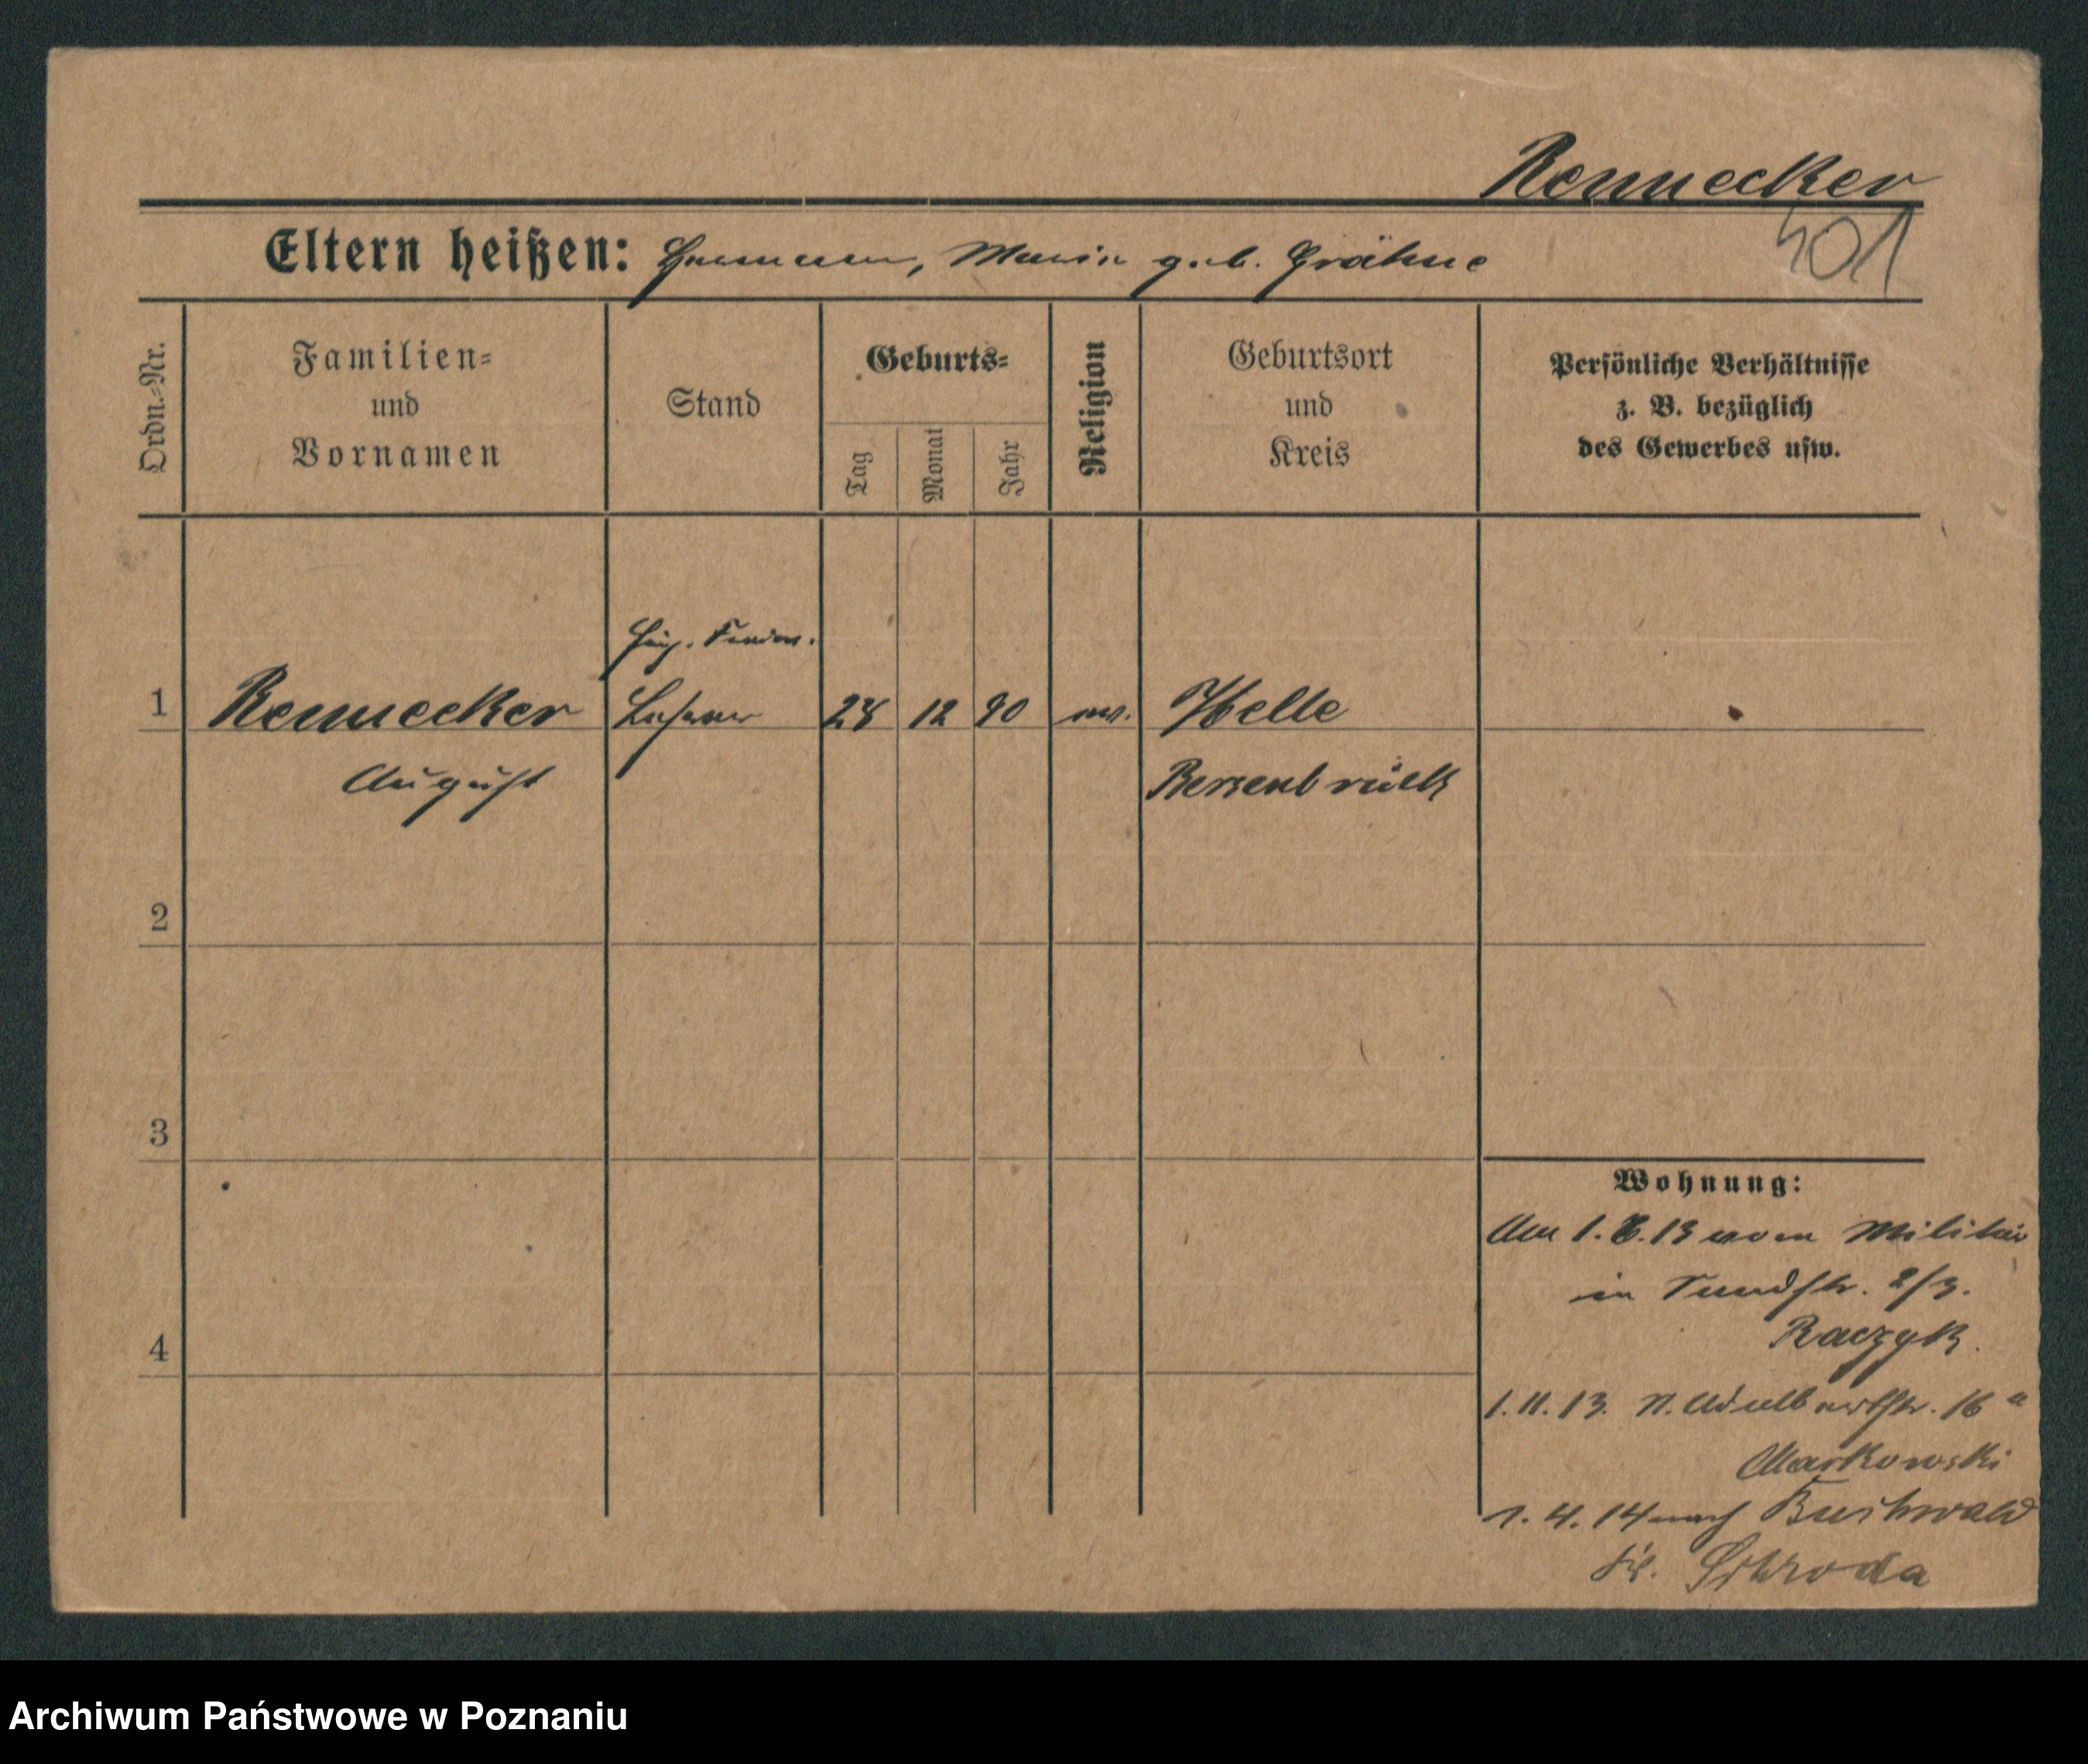 Rennecker
401
Eltern heißen: Hermann, Maria geb. Grähne
Ordn.-Nr.
Familien-
und
Vornamen
Stand
Geburts-
Tag
Monat
Jahr
Religion
Geburtsort
und
Kreis
Persönliche Verhältnisse
z. B. bezüglich
des Gewerbes usw.
1
Rennecker
August
Lehrer
12 90
Helle
Bersenbrück
2
3
4
Wohnung:
Am 1. 13 vom Militär
in 2/3.
Raczyk.
1.11.13. N. Adalbertstr. 16 a
Markowski
1. 4. 14 nach Buchwald
Schroda
Archiwum Państwowe w Poznaniu